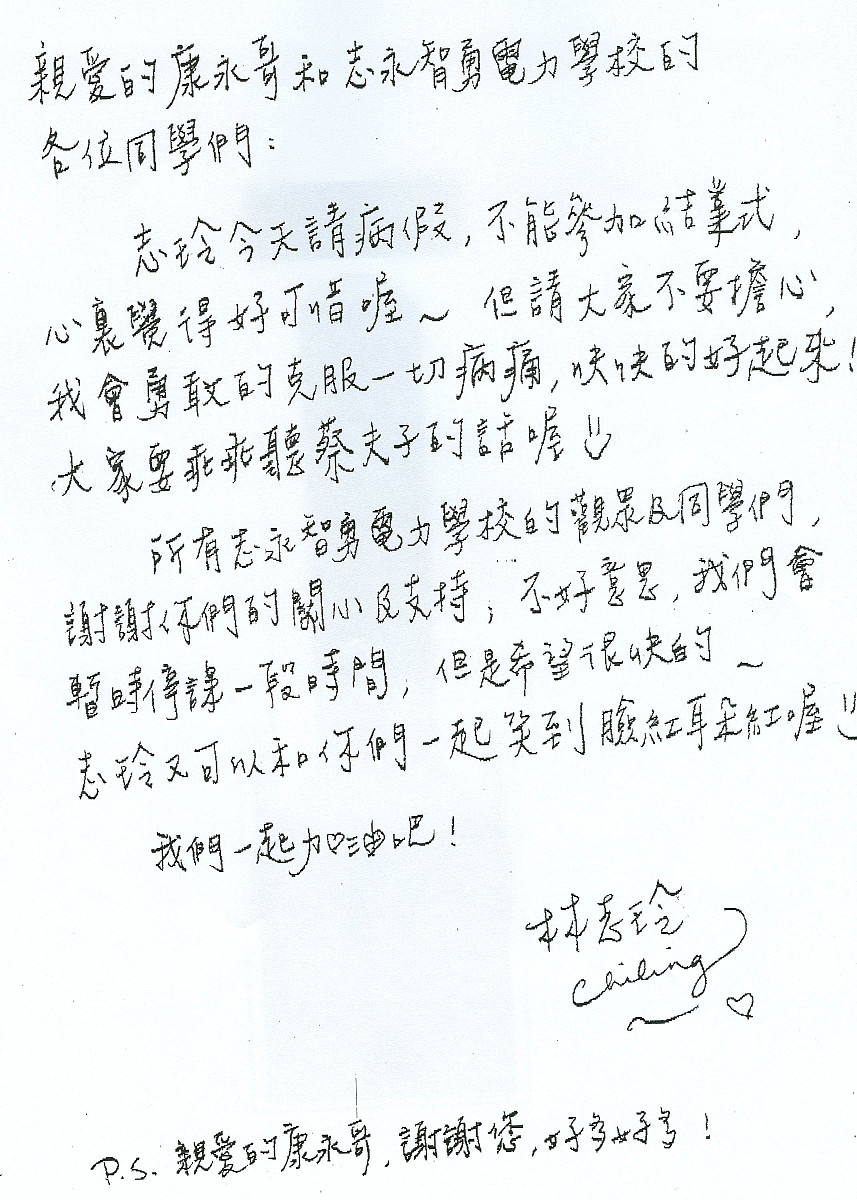 親愛的康永哥和志永智勇電力學校的
各位同學們：
志玲今天請病假，不能參加結業式，
心裏覺得好可惜喔～ 但請大家不要擔心，
我會勇敢的克服一切病痛，快快的好起來！
大家要乖乖聽蔡夫子的話喔
所有志永智勇電力學校的觀眾及同學們，
謝謝你們的關心及支持；不好意思，我們會
暫時停課一段時間，但是希望很快的～
志玲又可以和你們一起笑到臉紅耳朵紅喔
我們一起加油吧！
林志玲
Chiling
P.S. 親愛的康永哥，謝謝您，好多好多！